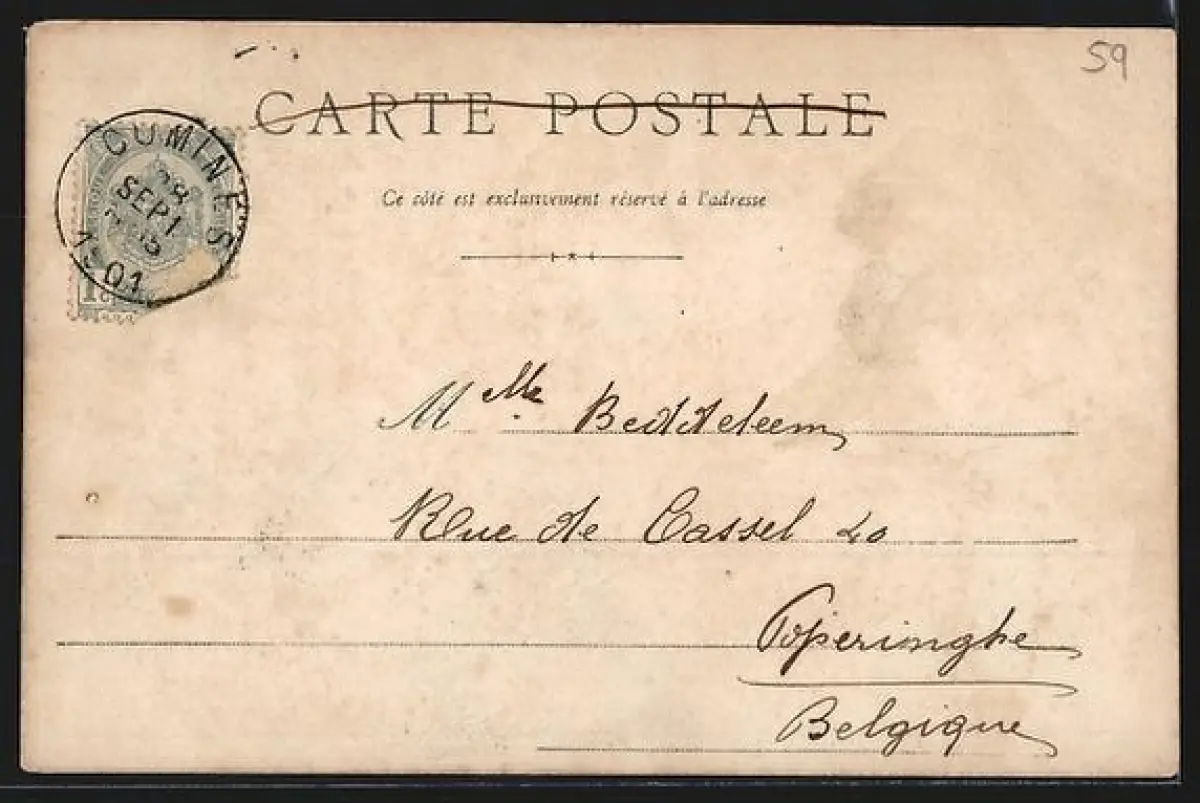 59
CARTE POSTALE
Ce côté est exclusivement réservé à l'adresse
COMINES
28
SEPT
1901
M lle Beddeleem
Rue de Cassel 20
Poperinghe
Belgique